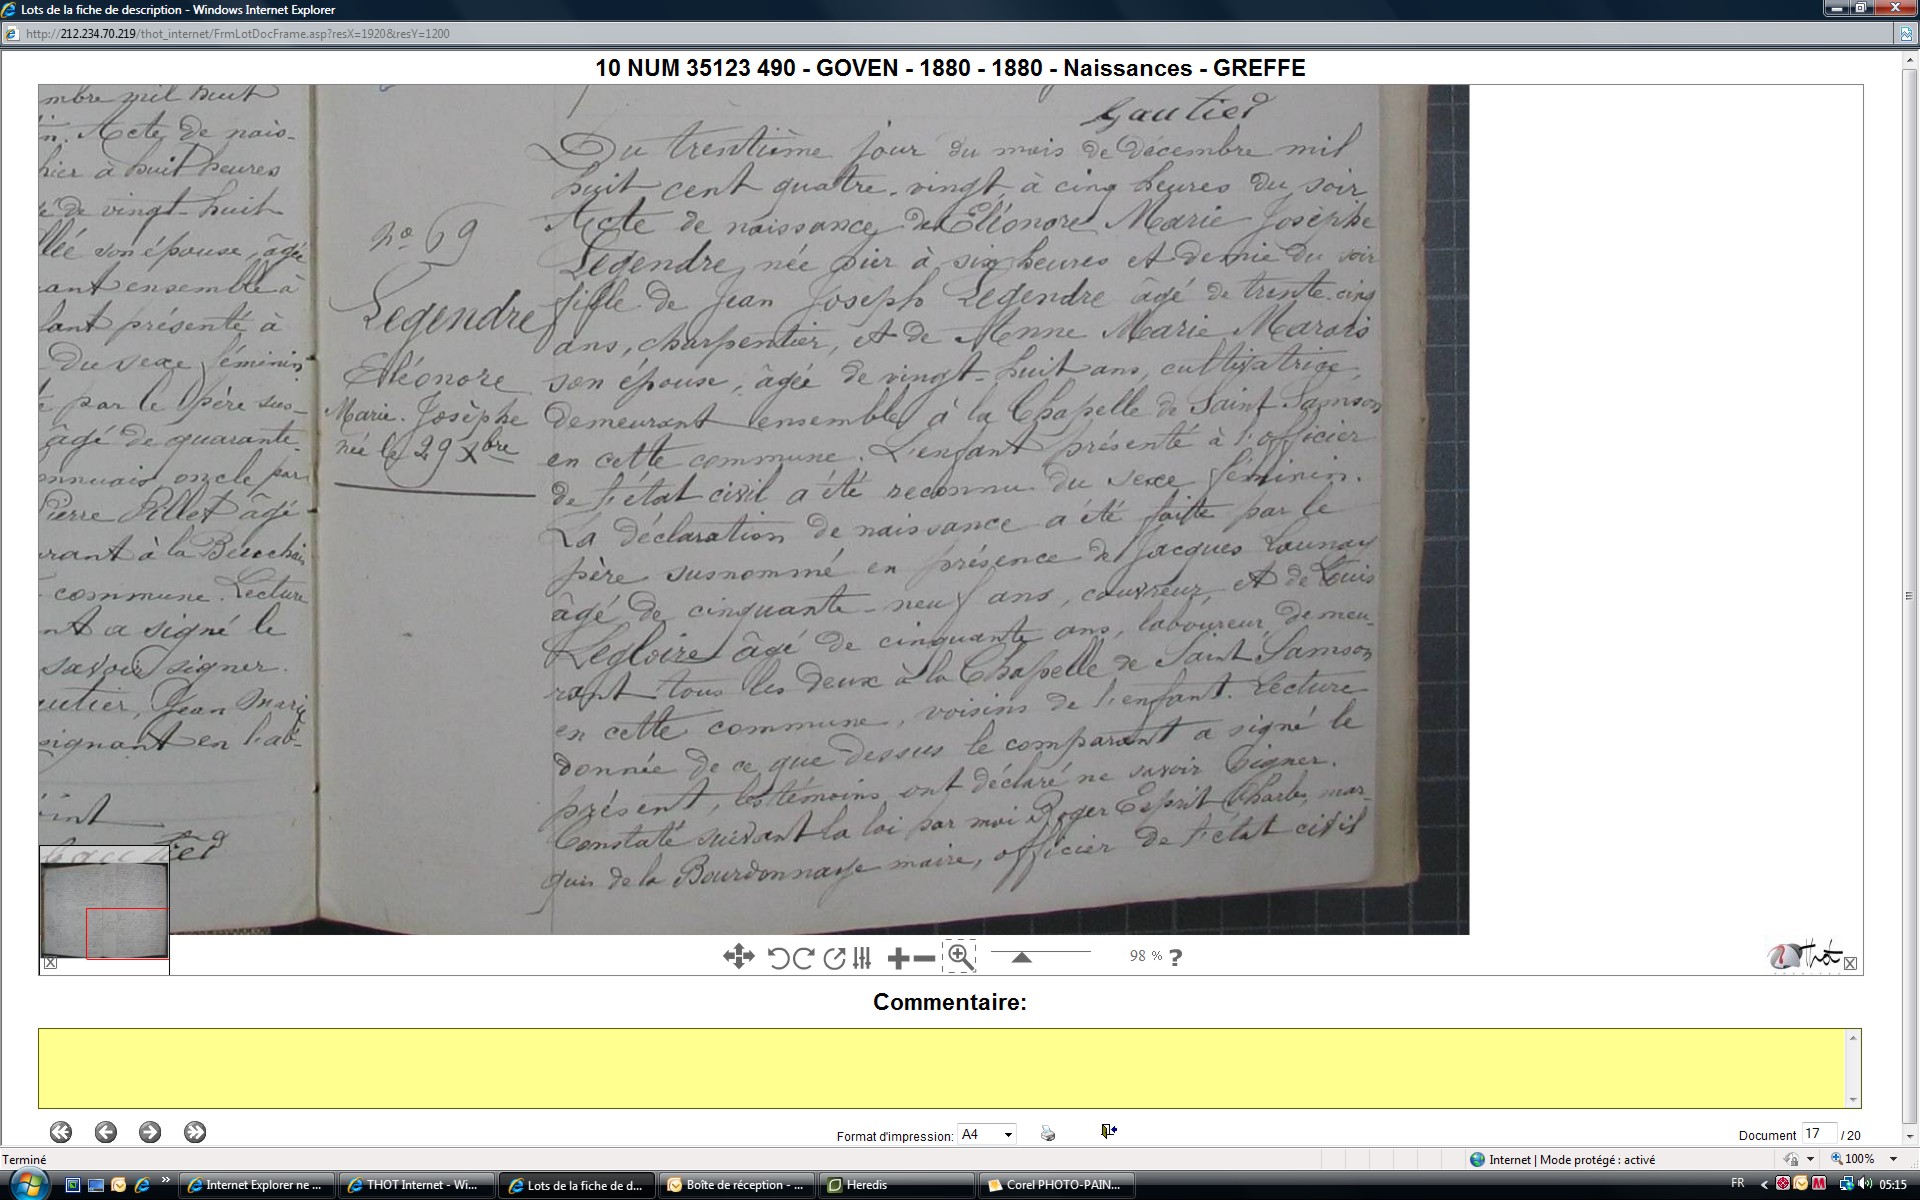 Lots de la fiche de description - Windows Internet Explorer
http://212.234.70.219/thot_internet/FrmLotDocFrame.asp?resX=1920&resY=1200
10 NUM 35123 490 - GOVEN - 1880 - 1880 - Naissances - GREFFE
mbre mil huit
n. Acte de nais-
hier à huit heures
é de vingt-huit
llée son épouse, âgée
rant ensemble à
fant présenté à
Du sexe féminin
é par le père sus-
âgé de quarante-
oncle par
Pierre Pillet âgé
urant à la
commune. Lecture
nt a signé le
savoir signer.
utier, Jean Marie
signant en l'ab-
oint
Gautier
no 69
Legendre
Eléonore
Marie. Josèphe
née le 29 Xbre
Gautier
Du trentième jour du mois de Décembre mil
huit cent quatre-vingt, à cinq heures du soir
Acte de naissance de Eléonore Marie Josèphe
Legendre, née hier à six heures et demie du soir
fille de Jean Joseph Legendre âgé de trente-cinq
ans, charpentier, et de Anne Marie Marais
son épouse, âgée de vingt-huit ans, cultivatrice,
demeurant ensemble à la Chapelle de Saint Samson
en cette commune. L'enfant présenté à l'officier
de l'état civil a été reconnu du sexe féminin.
La déclaration de naissance a été faite par le
père susnommé en présence de Jacques Launay
âgé de cinquante-neuf ans, couvreur, et de Louis
Legloire âgé de cinquante ans, laboureur, demeu-
rant tous les deux à la Chapelle de Saint Samson
en cette commune, voisins de l'enfant. Lecture
donnée de ce que dessus le comparant a signé le
présent, les témoins ont déclaré ne savoir signer.
Constaté suivant la loi par moi Roger Esprit Charles, mar-
quis de la Bourdonnaye maire, officier de l'état civil
98 % ?
Thot
Commentaire:
Format d'impression: A4
Document 17 / 20
Terminé
Internet | Mode protégé : activé
100%
Internet Explorer ne ...
THOT Internet - Wi...
Lots de la fiche de d...
Boîte de réception - ...
Heredis
Corel PHOTO-PAIN...
FR
05:15